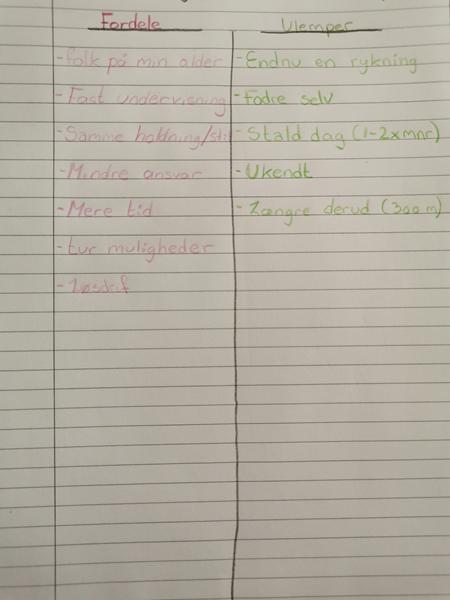 Fordele
Ulemper
-Folk på min alder
-Endnu en rykning
-Fast undervisning
-Fodre selv
-Samme holdning/sti
-Stald dag (1-2xmnr)
-Mindre ansvar
-Ukendt
-Mere tid
-Længre derud (300 m)
-tur muligheder
-Løsdrif